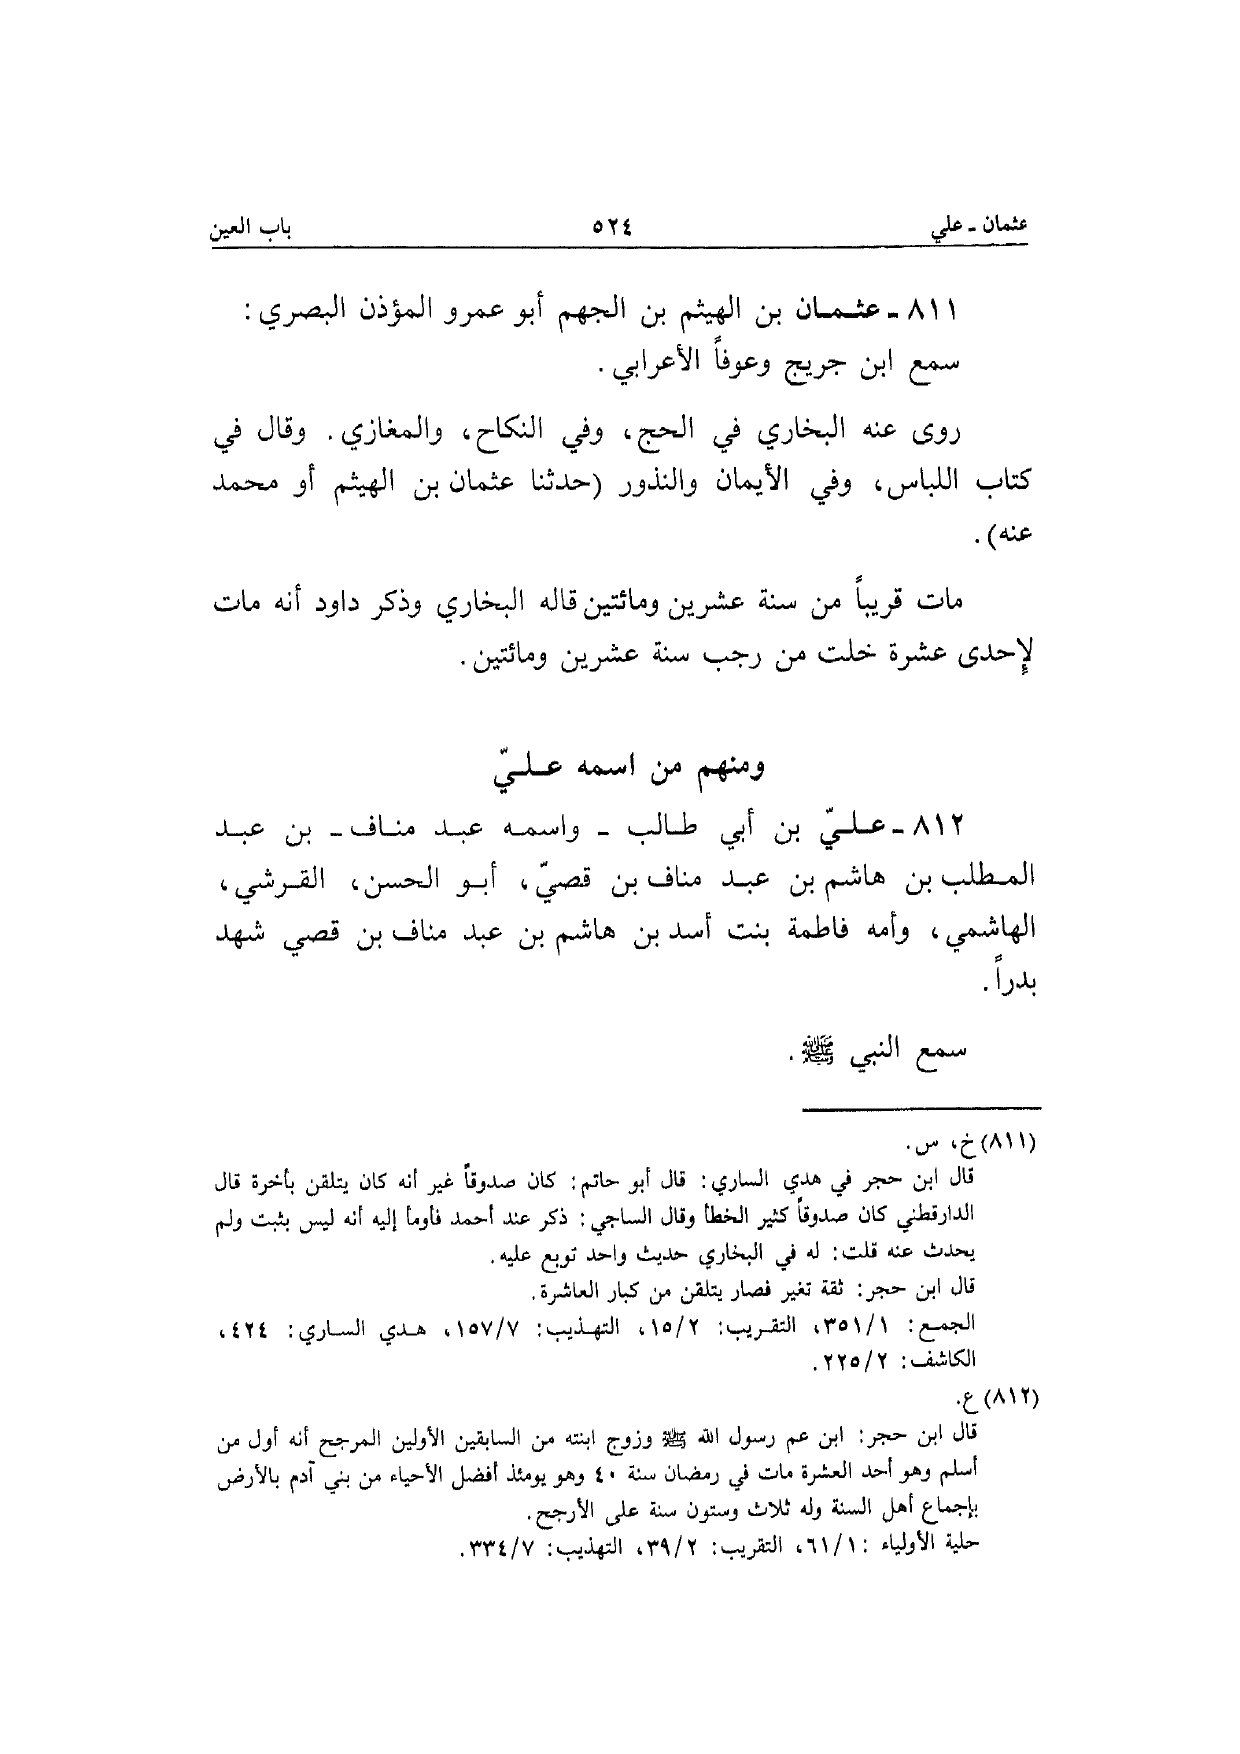 عثمان ـ علي ٥٢٤ باب العين
٨١١ ـ عثـمـان بن الهيثم بن الجهم أبو عمرو المؤذن البصري :
سمع ابن جريج وعوفاً الأعرابي .
روى عنه البخاري في الحج، وفي النكاح، والمغازي. وقال في
كتاب اللباس، وفي الأيمان والنذور (حدثنا عثمان بن الهيثم أو محمد
عنه) .
مات قريباً من سنة عشرين ومائتين قاله البخاري وذكر داود أنه مات
لإحدى عشرة خلت من رجب سنة عشرين ومائتين .
ومنهم من اسمه عـلـيّ
٨١٢ ـ عـلـيّ بن أبي طـالـب ـ واسمـه عبـد منـاف ـ بن عبـد
المـطلب بن هاشم بن عبـد مناف بن قصيّ، أبـو الحسن، القـرشي،
الهاشمي، وأمه فاطمة بنت أسد بن هاشم بن عبد مناف بن قصي شهد
بدراً .
سمع النبي ﷺ .
(٨١١) خ، س.
قال ابن حجر في هدي الساري: قال أبو حاتم: كان صدوقاً غير أنه كان يتلقن بأخرة قال
الدارقطني كان صدوقاً كثير الخطأ وقال الساجي: ذكر عند أحمد فأومأ إليه أنه ليس بثبت ولم
يحدث عنه قلت: له في البخاري حديث واحد توبع عليه.
قال ابن حجر: ثقة تغير فصار يتلقن من كبار العاشرة.
الجمـع: ٣٥١/١، التقـريب: ١٥/٢، التهـذيب: ١٥٧/٧، هـدي السـاري: ٤٢٤،
الكاشف: ٢٢٥/٢.
(٨١٢) ع.
قال ابن حجر: ابن عم رسول الله ﷺ وزوج ابنته من السابقين الأولين المرجح أنه أول من
أسلم وهو أحد العشرة مات في رمضان سنة ٤٠ وهو يومئذ أفضل الأحياء من بني آدم بالأرض
بإجماع أهل السنة وله ثلاث وستون سنة على الأرجح.
حلية الأولياء : ٦١/١، التقريب: ٣٩/٢، التهذيب: ٣٣٤/٧.